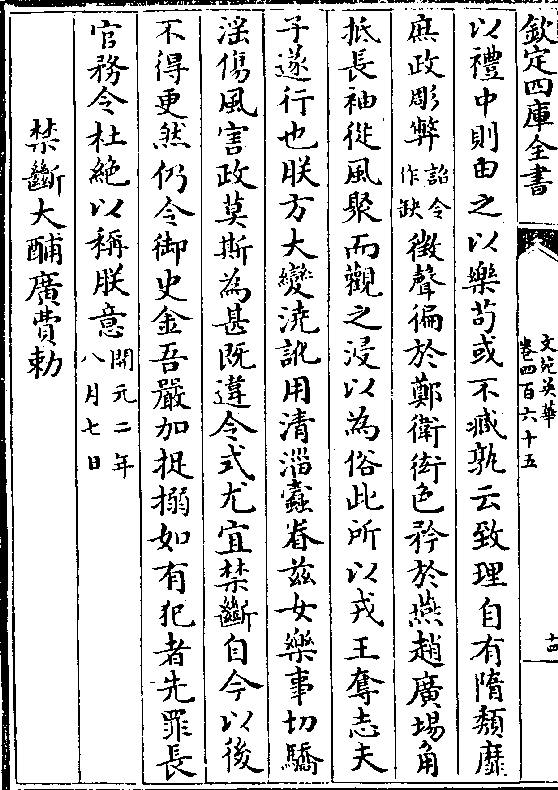 欽定四庫全書
文苑英華
卷四百六十五
十四
以禮中則由之以樂苟或不臧孰云致理自有隋頹靡
庶政彫弊詔令作缺徵聲徧於鄭衛衒色矜於燕趙廣場角
抵長袖從風聚而觀之浸以為俗此所以戎王奪志夫
子遂行也朕方大變澆訛用清淄蠹眷兹女樂事切驕
淫傷風害政莫斯為甚既違令式尤宜禁斷自今以後
不得更然仍令御史金吾嚴加捉搦如有犯者先罪長
官務令杜絶以稱朕意開元二年八月七日
禁斷大酺廣費勅